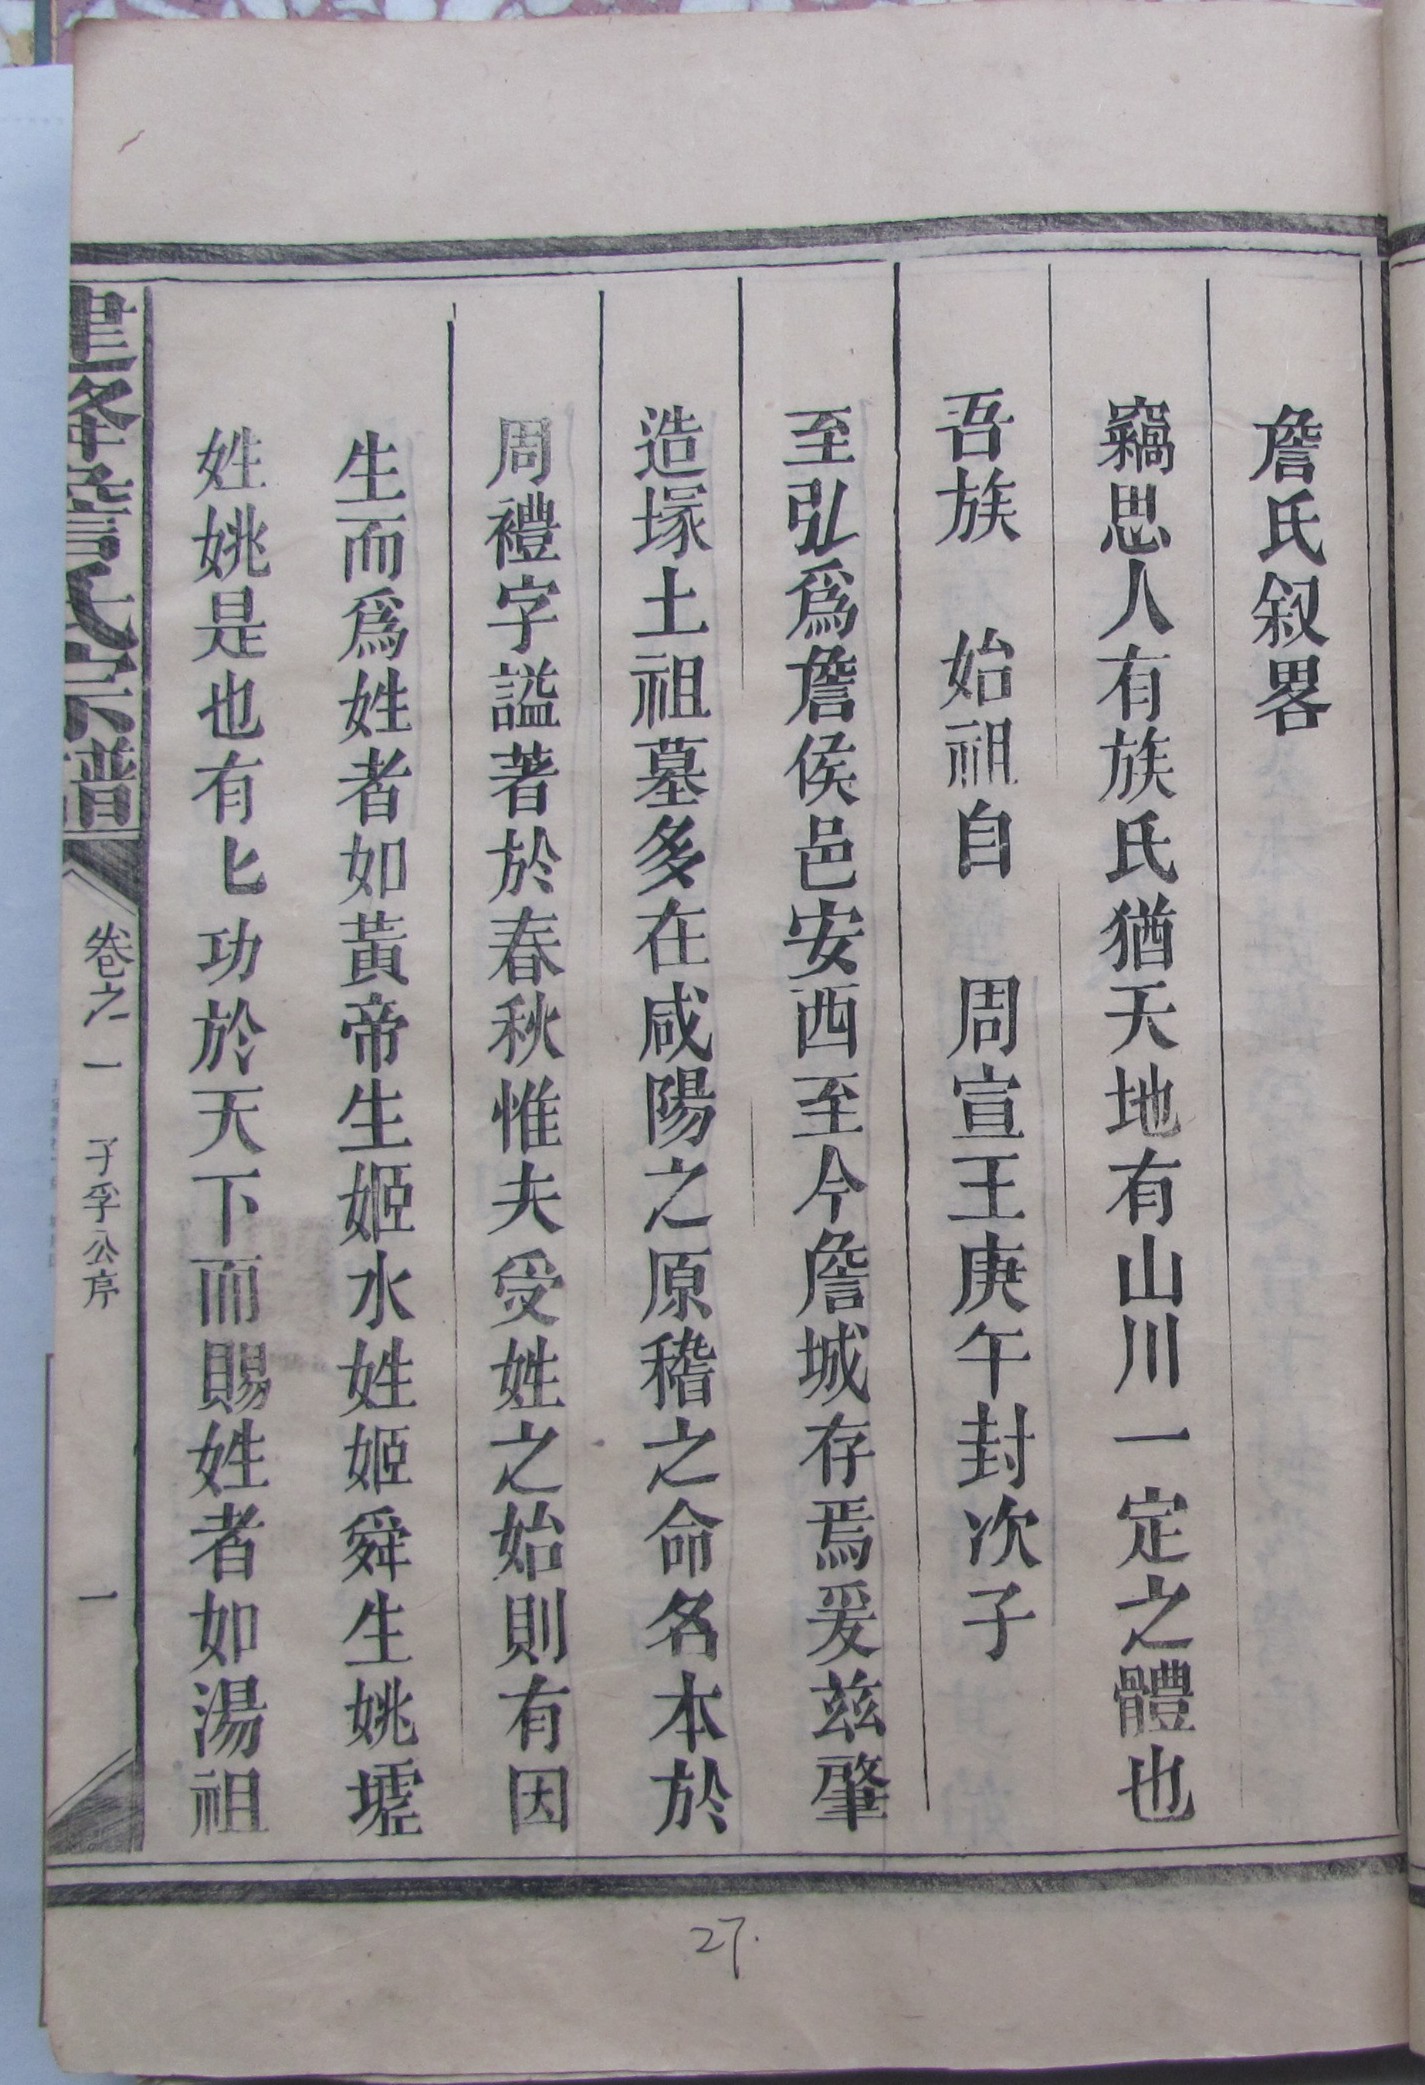 詹氏叙畧
竊思人有族氏猶天地有山川一定之體也
吾族 始祖自 周宣王庚午封次子
至弘爲詹侯邑安西至今詹城存焉爰茲肇
造塚土祖墓多在咸陽之原稽之命名本於
周禮字諡著於春秋惟夫受姓之始則有因
生而爲姓者如黃帝生姬水姓姬舜生姚墟
姓姚是也有以功於天下而賜姓者如湯祖
詹氏宗譜
卷之一
一
27